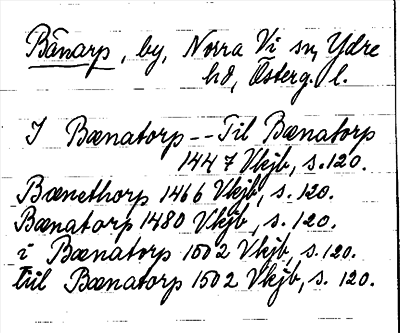 Bänarp, by, Norra Vi sn, Ydre
hd, Österg. l.
I Bænatorp -- Til Bænatorp
1447 Vkjb, s. 120.
Bænethorp 1466 Vkjb, s. 120.
Bænatorp 1480 Vkjb, s. 120.
i Bænatorp 1502 Vkjb, s. 120.
till Bænatorp 1502 Vkjb, s. 120.